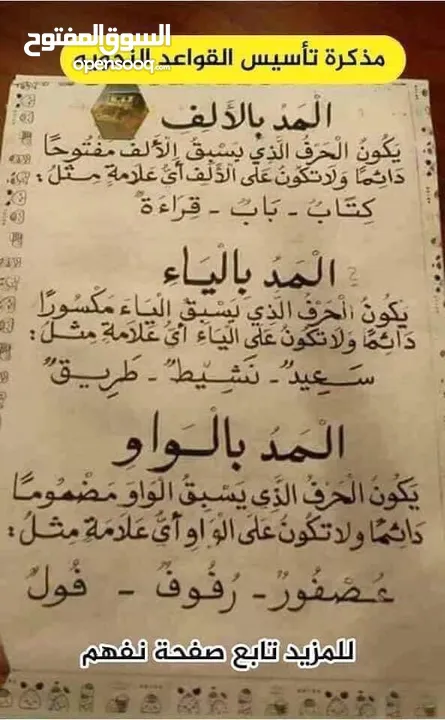 السوق المفتوح
opensooq.com
مذكرة تأسيس القواعد
الْمَدُ بِالأَلِفِ
يَكُونُ الْحَرْفُ الَّذِي يَسْبِقُ الأَلِفَ مَفْتُوحًا
دَائِمًا وَلَا تَكُونُ عَلَى الْأَلِفِ أَيُّ عَلَامَةٍ مِثْلُ :
كِتَابٌ - بَابٌ - قِرَاءَةٌ
الْمَدُ بِالْيَاءِ
يَكُونُ الْحَرْفُ الَّذِي يَسْبِقُ الْيَاءَ مَكْسُورًا
دَائِمًا وَلَا تَكُونُ عَلَى الْيَاءِ أَيُّ عَلَامَةٍ مِثْلُ :
سَعِيدٌ - نَشِيطٌ - طَرِيقٌ
الْمَدُ بِالْوَاوِ
يَكُونُ الْحَرْفُ الَّذِي يَسْبِقُ الْوَاوَ مَضْمُومًا
دَائِمًا وَلَا تَكُونُ عَلَى الْوَاوِ أَيُّ عَلَامَةٍ مِثْلُ :
عُصْفُورٌ - رُفُوفٌ - فُولٌ
للمزيد تابع صفحة نفهم